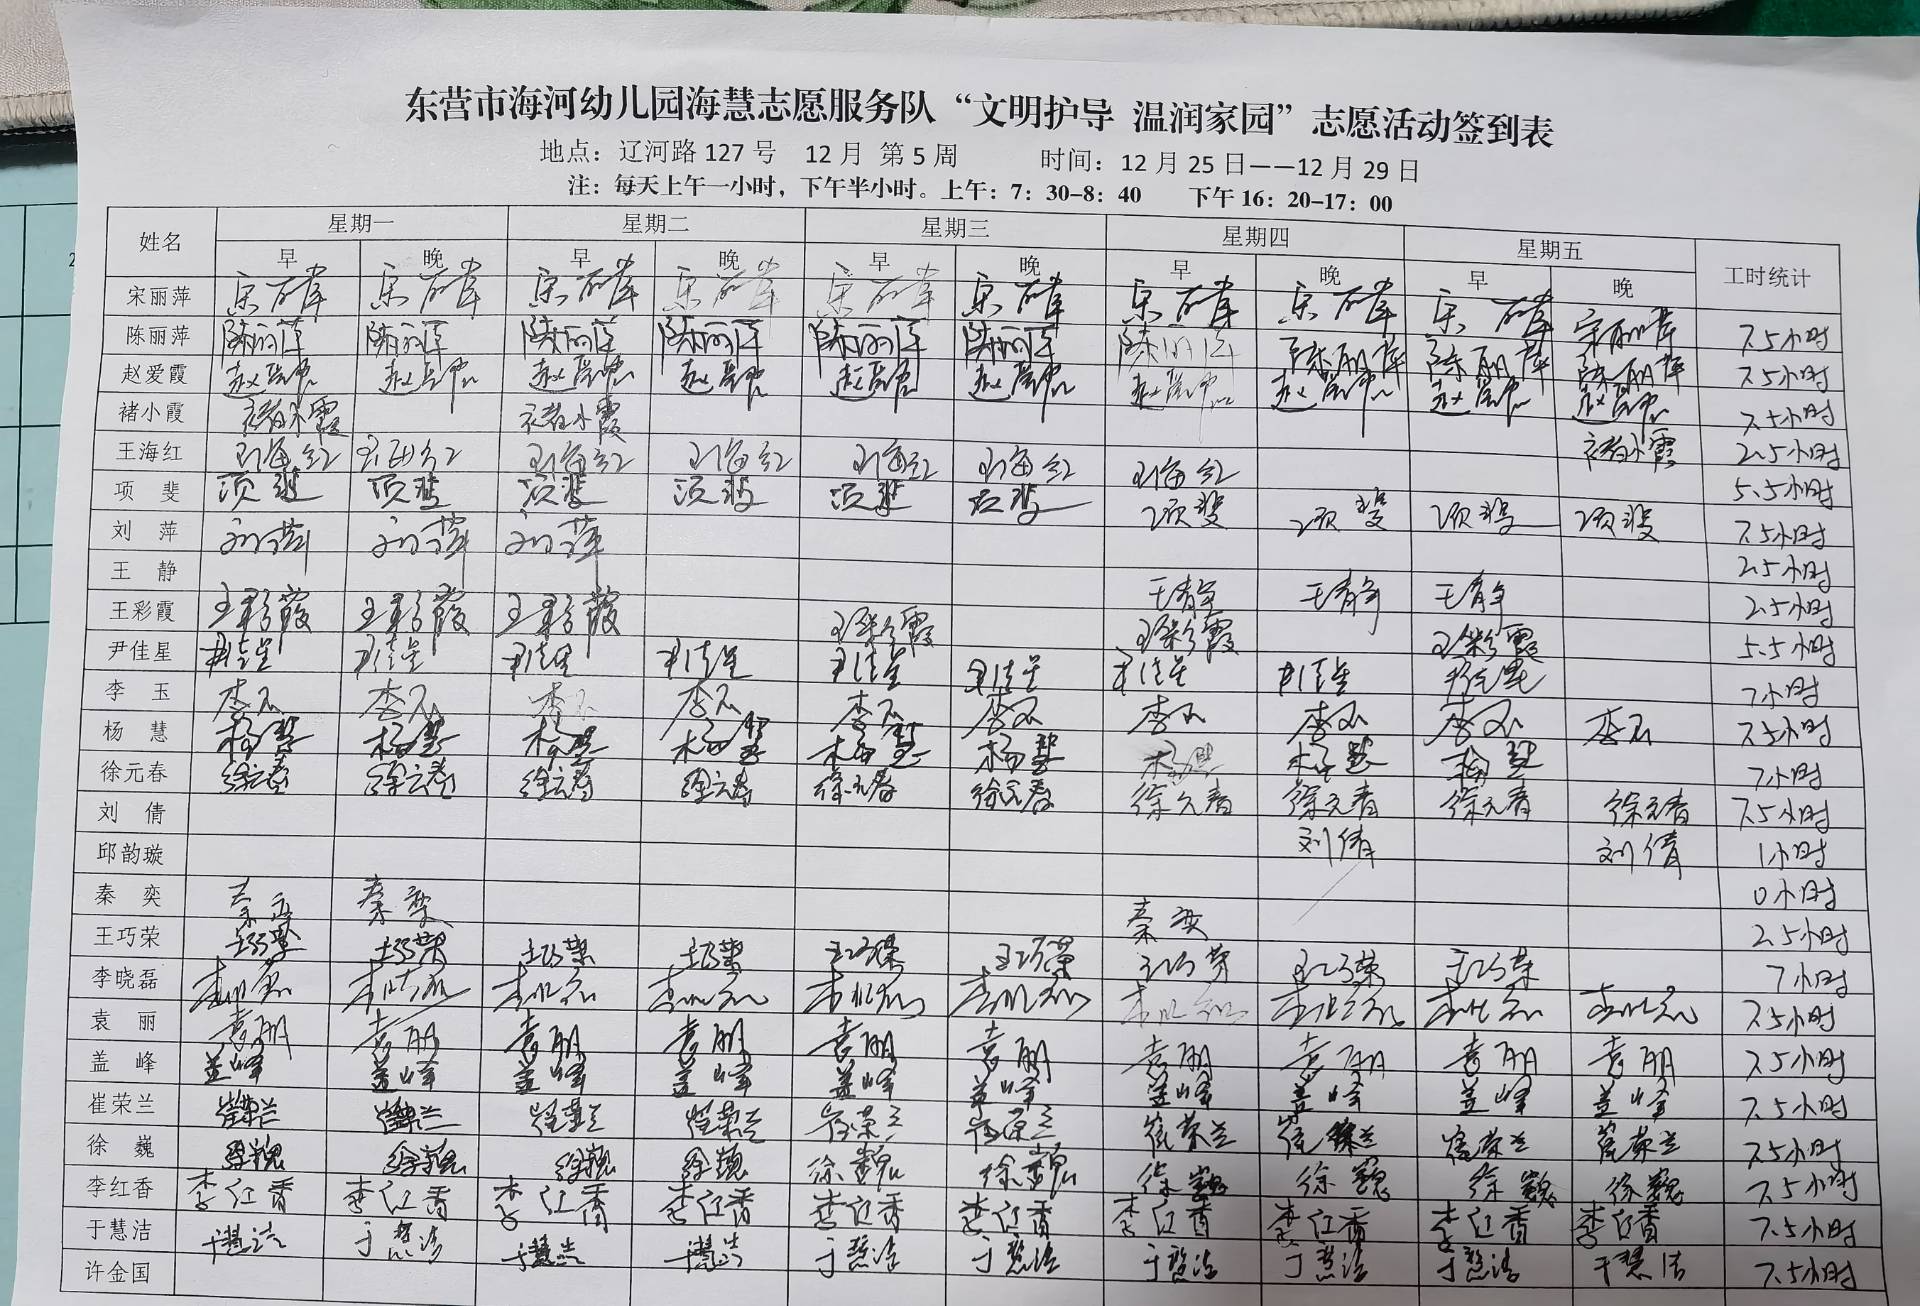 东营市海河幼儿园海慧志愿服务队“文明护导 温润家园”志愿活动签到表
地点：辽河路 127 号 12 月 第 5 周 时间：12 月 25 日——12 月 29 日
注：每天上午一小时，下午半小时。上午：7：30-8：40 下午 16：20-17：00
姓名 星期一 星期二 星期三 星期四 星期五 工时统计
早 晚 早 晚 早 晚 早 晚 早 晚
宋丽萍 宋丽萍 宋丽萍 宋丽萍 宋丽萍 宋丽萍 宋丽萍 宋丽萍 宋丽萍 宋丽萍 宋丽萍 7.5小时
陈丽萍 陈丽萍 陈丽萍 陈丽萍 陈丽萍 陈丽萍 陈丽萍 陈丽萍 陈丽萍 陈丽萍 陈丽萍 7.5小时
赵爱霞 赵爱霞 赵爱霞 赵爱霞 赵爱霞 赵爱霞 赵爱霞 赵爱霞 赵爱霞 赵爱霞 赵爱霞 7.5小时
褚小霞 褚小霞 褚小霞 褚小霞 2.5小时
王海红 王海红 王海红 王海红 王海红 王海红 王海红 王海红 5.5小时
项 斐 项斐 项斐 项斐 项斐 项斐 项斐 项斐 项斐 项斐 项斐 7.5小时
刘 萍 刘萍 刘萍 刘萍 2.5小时
王 静 王静 王静 王静 2.5小时
王彩霞 王彩霞 王彩霞 王彩霞 王彩霞 王彩霞 王彩霞 5.5小时
尹佳星 尹佳星 尹佳星 尹佳星 尹佳星 尹佳星 尹佳星 尹佳星 尹佳星 尹佳星 7小时
李 玉 李玉 李玉 李玉 李玉 李玉 李玉 李玉 李玉 李玉 李玉 7.5小时
杨 慧 杨慧 杨慧 杨慧 杨慧 杨慧 杨慧 杨慧 杨慧 杨慧 7小时
徐元春 徐元春 徐元春 徐元春 徐元春 徐元春 徐元春 徐元春 徐元春 徐元春 徐元春 7.5小时
刘 倩 刘倩 刘倩 1小时
邱韵璇 0小时
秦 奕 秦奕 秦奕 秦奕 2.5小时
王巧荣 王巧荣 王巧荣 王巧荣 王巧荣 王巧荣 王巧荣 王巧荣 王巧荣 王巧荣 7小时
李晓磊 李晓磊 李晓磊 李晓磊 李晓磊 李晓磊 李晓磊 李晓磊 李晓磊 李晓磊 李晓磊 7.5小时
袁 丽 袁丽 袁丽 袁丽 袁丽 袁丽 袁丽 袁丽 袁丽 袁丽 袁丽 7.5小时
盖 峰 盖峰 盖峰 盖峰 盖峰 盖峰 盖峰 盖峰 盖峰 盖峰 盖峰 7.5小时
崔荣兰 崔荣兰 崔荣兰 崔荣兰 崔荣兰 崔荣兰 崔荣兰 崔荣兰 崔荣兰 崔荣兰 崔荣兰 7.5小时
徐 巍 徐巍 徐巍 徐巍 徐巍 徐巍 徐巍 徐巍 徐巍 徐巍 徐巍 7.5小时
李红香 李红香 李红香 李红香 李红香 李红香 李红香 李红香 李红香 李红香 李红香 7.5小时
于慧洁 于慧洁 于慧洁 于慧洁 于慧洁 于慧洁 于慧洁 于慧洁 于慧洁 于慧洁 于慧洁 7.5小时
许金国